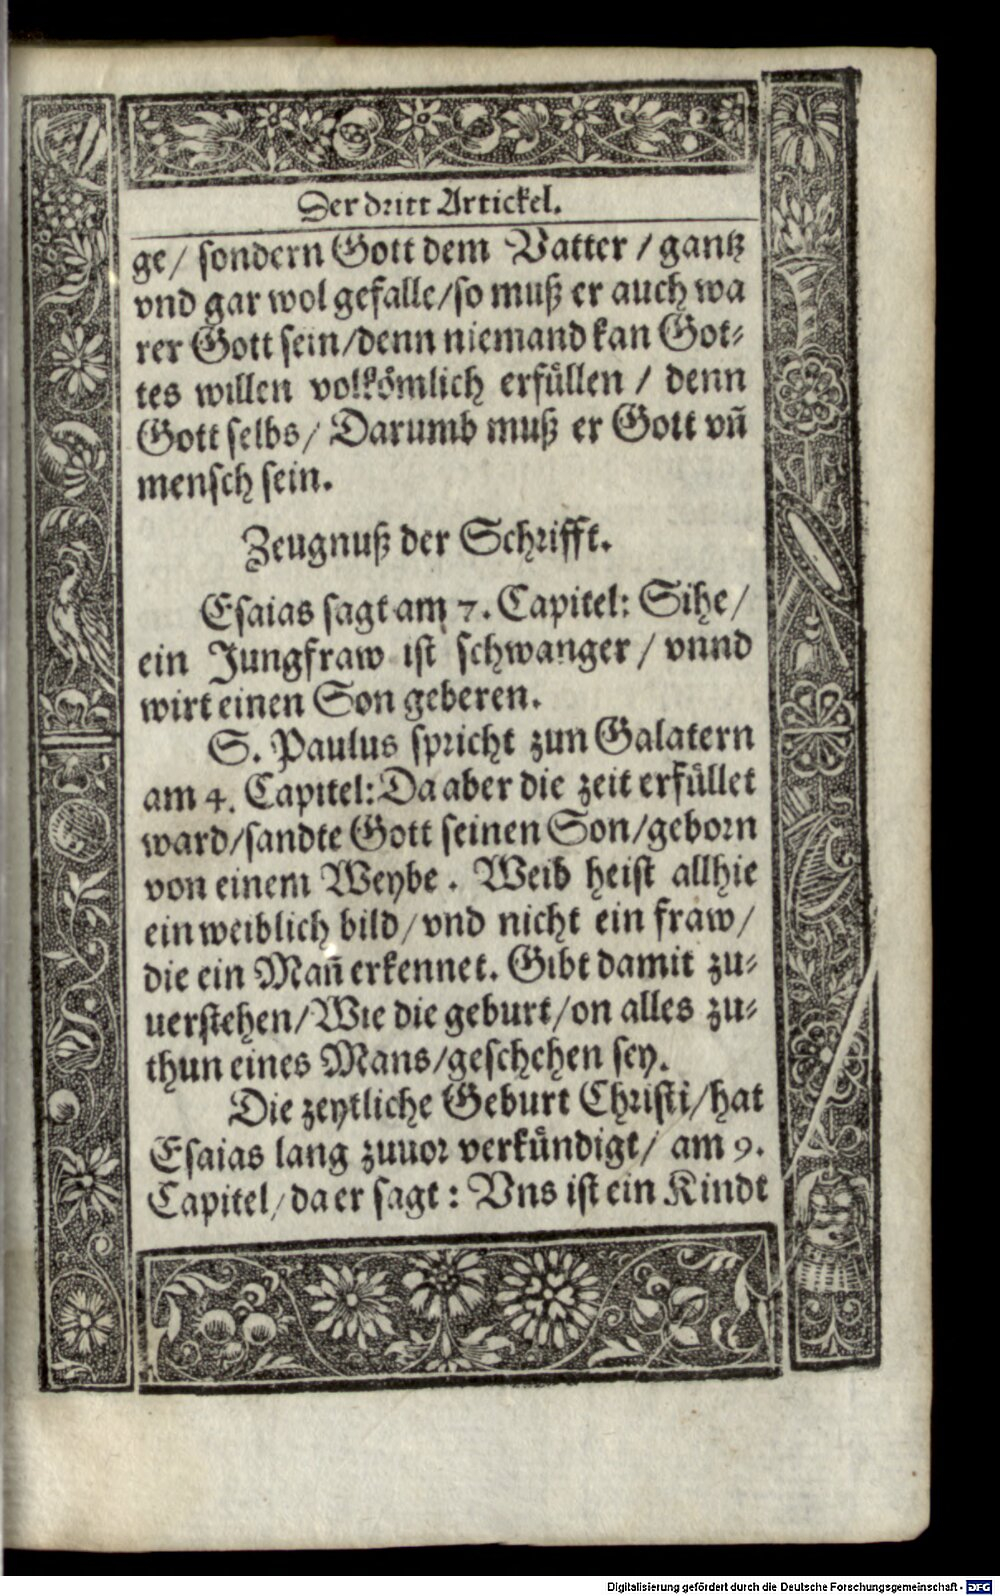 Der dritt Artickel.
ge/ sondern Gott dem Vatter / gantz
vnd gar wol gefalle/so muß er auch wa
rer Gott sein/denn niemand kan Got⸗
tes willen volkömlich erfüllen / denn
Gott selbs/ Darumb muß er Gott vñ
mensch sein.
Zeugnuß der Schrifft.
Esaias sagt am 7. Capitel: Sihe/
ein Jungfraw ist schwanger / vnnd
wirt einen Son geberen.
S. Paulus spricht zun Galatern
am 4. Capitel: Da aber die zeit erfüllet
ward/sandte Gott seinen Son/geborn
von einem Weybe . Weib heist allhie
ein weiblich bild/ vnd nicht ein fraw/
die ein Mañ erkennet. Gibt damit zu⸗
uerstehen/ Wie die geburt/on alles zu⸗
thun eines Mans/geschehen sey.
Die zeytliche Geburt Christi/hat
Esaias lang zuuor verkündigt/ am 9.
Capitel/ da er sagt : Vns ist ein Kindt
Digitalisierung gefördert durch die Deutsche Forschungsgemeinschaft - DFG